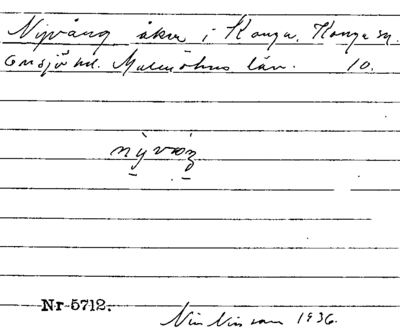 Nyvång åker i Konga, Konga sn.
Onsjö hd. Malmöhus län. 10.
Nr 5712.
Nils Nilsson 1936.